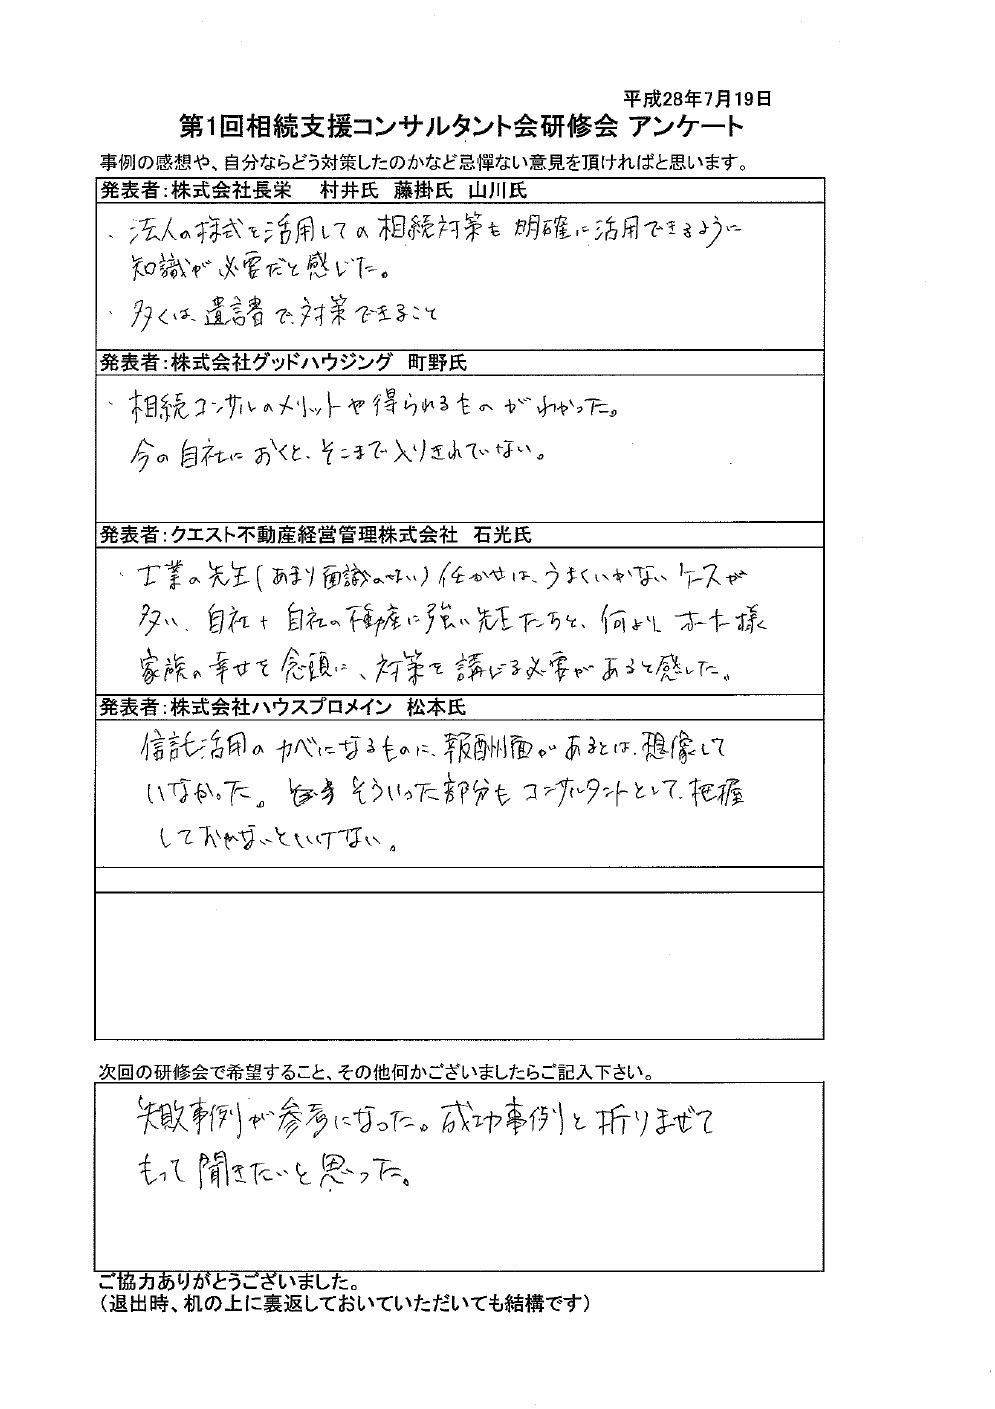 平成28年7月19日
第1回相続支援コンサルタント会研修会 アンケート
事例の感想や、自分ならどう対策したのかなど忌憚ない意見を頂ければと思います。
発表者：株式会社長栄　村井氏 藤掛氏 山川氏
・法人の株式を活用しての相続対策も明確に活用できるように
知識が必要だと感じた。
・多くは、遺言書で対策できること
発表者：株式会社グッドハウジング 町野氏
・相続コンサルのメリットや得られるものがわかった。
今の自社におくと、そこまで入りきれていない。
発表者：クエスト不動産経営管理株式会社 石光氏
・士業の先生（あまり面識のない）任かせは、うまくいかないケースが
多い、自社＋自社の不動産に強い先生たちと、何よりオーナー様
家族の幸せを念頭に、対策を講じる必要があると感じた。
発表者：株式会社ハウスプロメイン 松本氏
信託活用のカベになるものに、報酬面があるとは、想像して
いなかった。そういった部分もコンサルタントとして、把握
しておかないといけない。
次回の研修会で希望すること、その他何かございましたらご記入下さい。
失敗事例が参考になった。成功事例と折りまぜて
もって聞きたいと思った。
ご協力ありがとうございました。
（退出時、机の上に裏返しておいていただいても結構です）